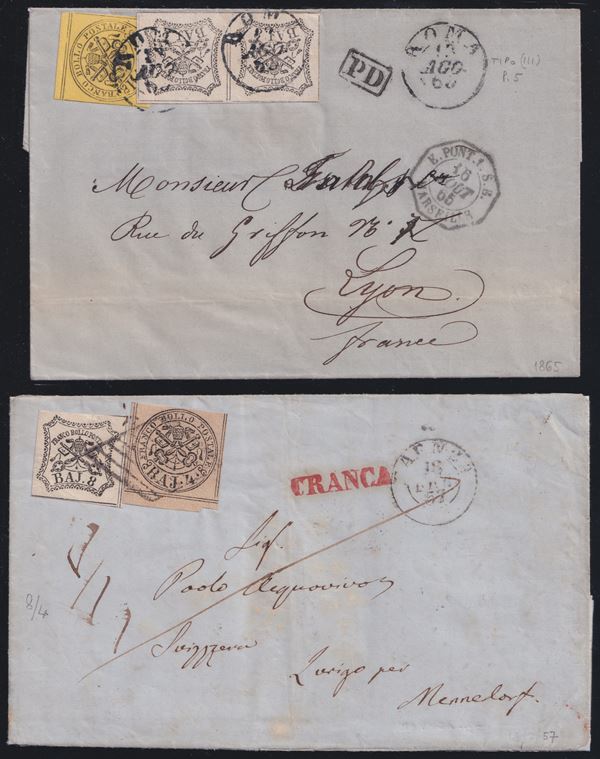 FRANCO BOLLO POSTALE
BAJ. 8
BAJ. 8
ROMA
AGO
PD
ROMA
15
AGO
65
TIPO (III)
P.5
E. PONT. 1. S.B.
16
AOUT
65
MARSEILLE
Monsieur
Rue du Griffon N°
Lyon
France
1865
FRANCO BOLLO POSTALE
BAJ. 8
FRANCO BOLLO POSTALE
BAJ. 4
FRANCA
18
Sig.
Paolo
8/4
Svizzera
Zurigo per
Mennedorf.
57